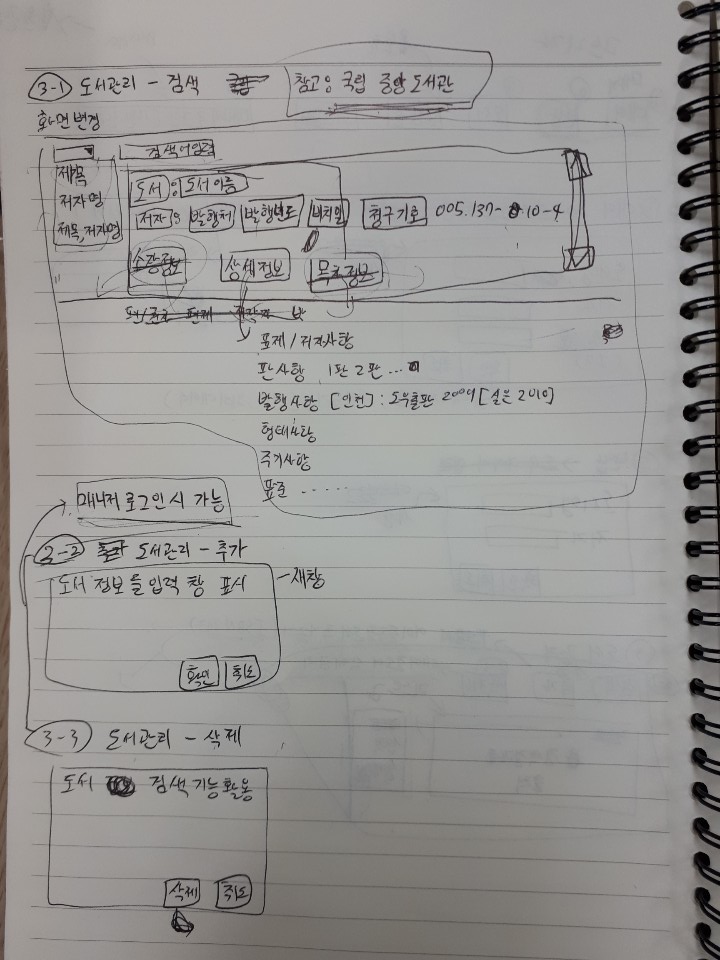 3-1 도서관리 - 검색
참고용 국립 중앙 도서관
화면변경
검색어입력
제목
저자명
제목, 저자명
도서 : 도서이름
저자 : 발행처 발행년도 비치일 청구기호 005.137- 10-4
소장정보 상세정보 목차정보
표제/저자사항
판사항 1판 2판 ...
발행사항 [인천] : 도우출판 2009 [실은 2010]
형태사항
주기사항
표준 .....
매니저 로그인 시 가능
3-2 도서관리 - 추가
도서 정보를 입력 창 표시 - 새창
확인 취소
3-3 도서관리 - 삭제
도서 검색기능활용
삭제 취소